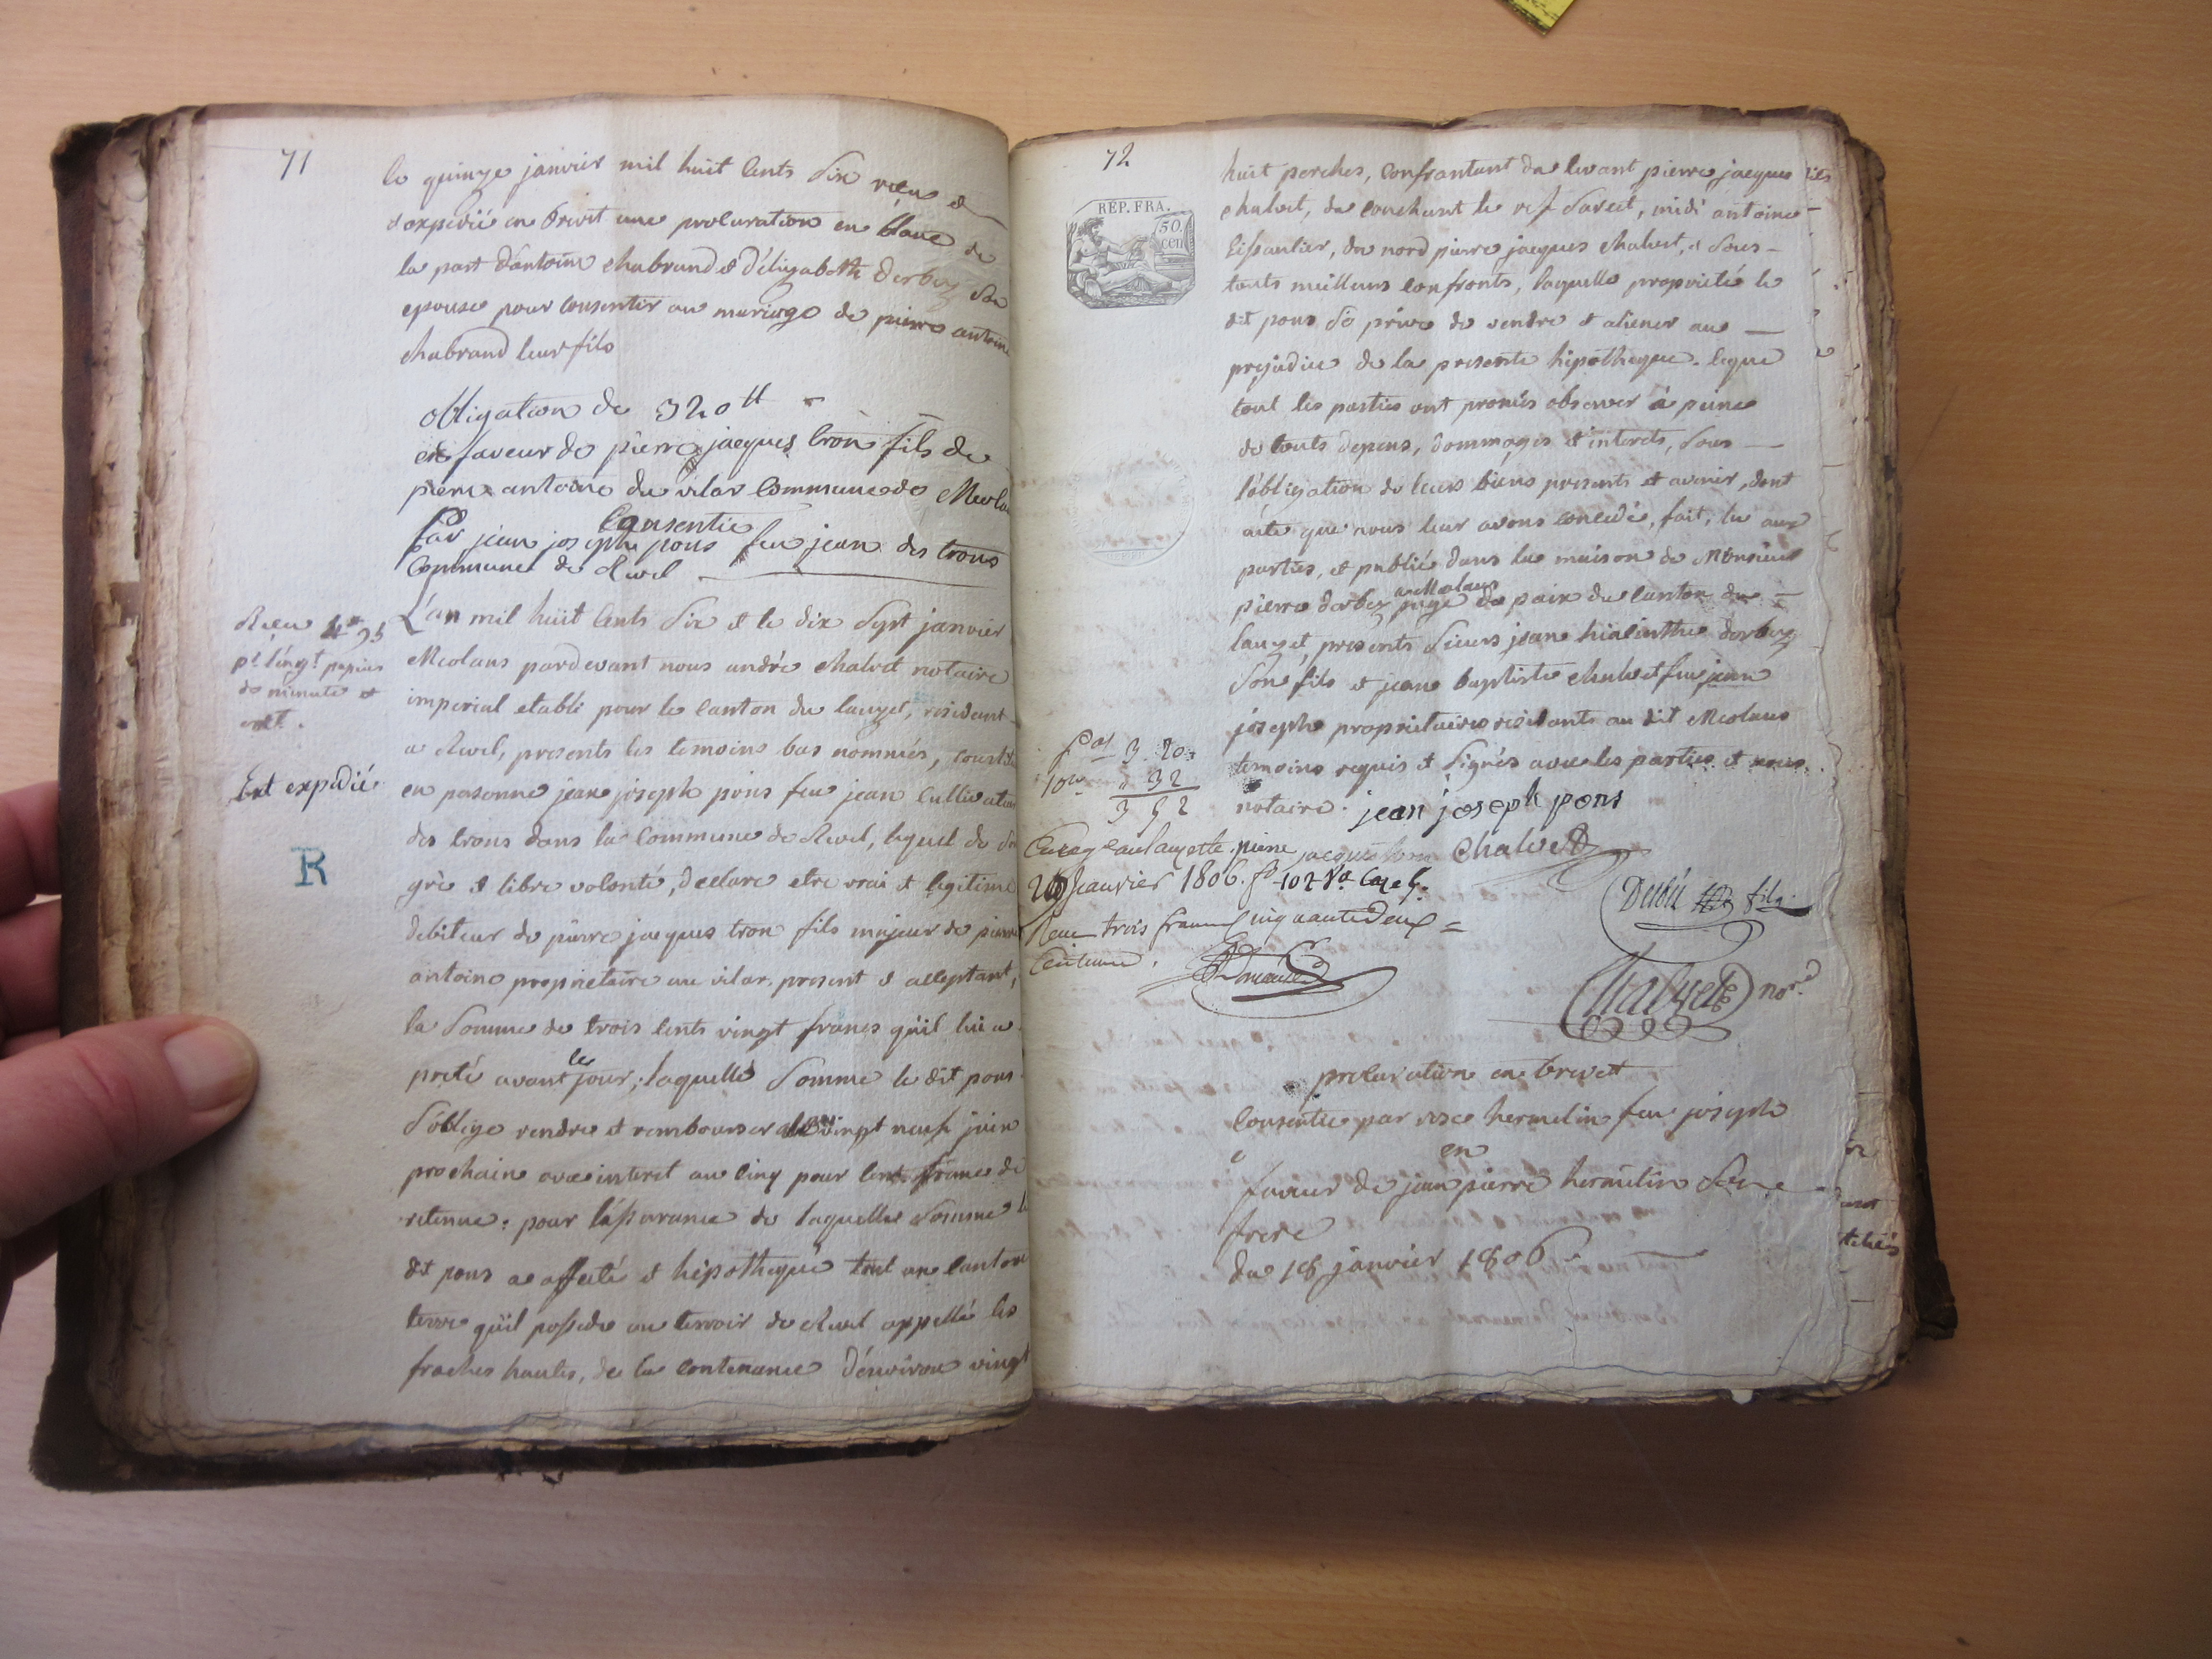 71
le quinze janvier mil huit cents six reçus et
expedié en brevet une procuration en blanc de
la part d'antoine chabrand et d'élizabeth derbez son
epouse pour consentir au mariage de pierre antoine
chabrand leur fils
obligation de 320 tt
en faveur de pierre jacques tron fils de
pierre antoine du vilar commune de Meolans
Consentie
par jean joseph pons feu jean des trons
Commune de Revel
Reçu
pr l'engt papier
de minute et
Est expedié
R
L'an mil huit cents six et le dix sept janvier
Meolans pardevant nous andré chalvet notaire
imperial etabli pour le canton du lauzet, residant
a Revel, presents les temoins bas nommés, constitué
en personne jean joseph pons feu jean cultivateur
des trons dans la commune de Revel, lequel de son
gré et libre volonté, declare etre vrai et legitime
debiteur de pierre jacques tron fils majeur de pierre
antoine proprietaire au vilar, present et acceptant,
la somme de trois cents vingt francs qu'il lui a
preté avant le jour; laquelle somme le dit pons
s'oblige rendre et rembourser vingt neuf juin
prochain avec interet au cinq pour cent franc de
retenue; pour l'assurance de laquelle somme le
dit pons a affecté et hipothequé tout un canton
terre qu'il possede au terroir de Revel appellé les
fraches hautes, de la contenance d'environ vingt
72
REP. FRA.
50.
cen
huit perches, confrontant du levant pierre jacques
chalvet, du couchant le rif savect, midi antoine
lissaulier, du nord pierre jacques chalvet, et sous
touts meilleurs confronts, laquelle proprieté le
dit pons se prive de vendre et aliener au
prejudice de la presente hipotheque. Ceque
tout les parties ont promis observer à peine
de touts depens, dommages et interets, sous
l'obligation de leurs biens presents et avenir, dont
acte que nous leur avons concedé, fait, lu aux
parties, et publié dans la maison de Monsieur
a Meolans
pierre derbez juge de paix du canton du
lauzet, presents sieurs jean hiacinthe derbez
son fils et jean baptiste chalvet feu jean
joseph proprietaires residants au dit Meolans
temoins requis et signés avec les parties et nous
notaire. jean joseph pons
3 20
10me 32
3 52
pierre jacques tron Chalvet
Enregé au lauzette
20 Janvier 1806. fo 102 Vo Case 5.
Reçu trois francs cinquante Deux
Centimes.
fils
Chalvet nore
procuration en brevet
Consentie par rose hermelin feu joseph
en
faveur de jean pierre hermelin son
frere
du 18 janvier 1806